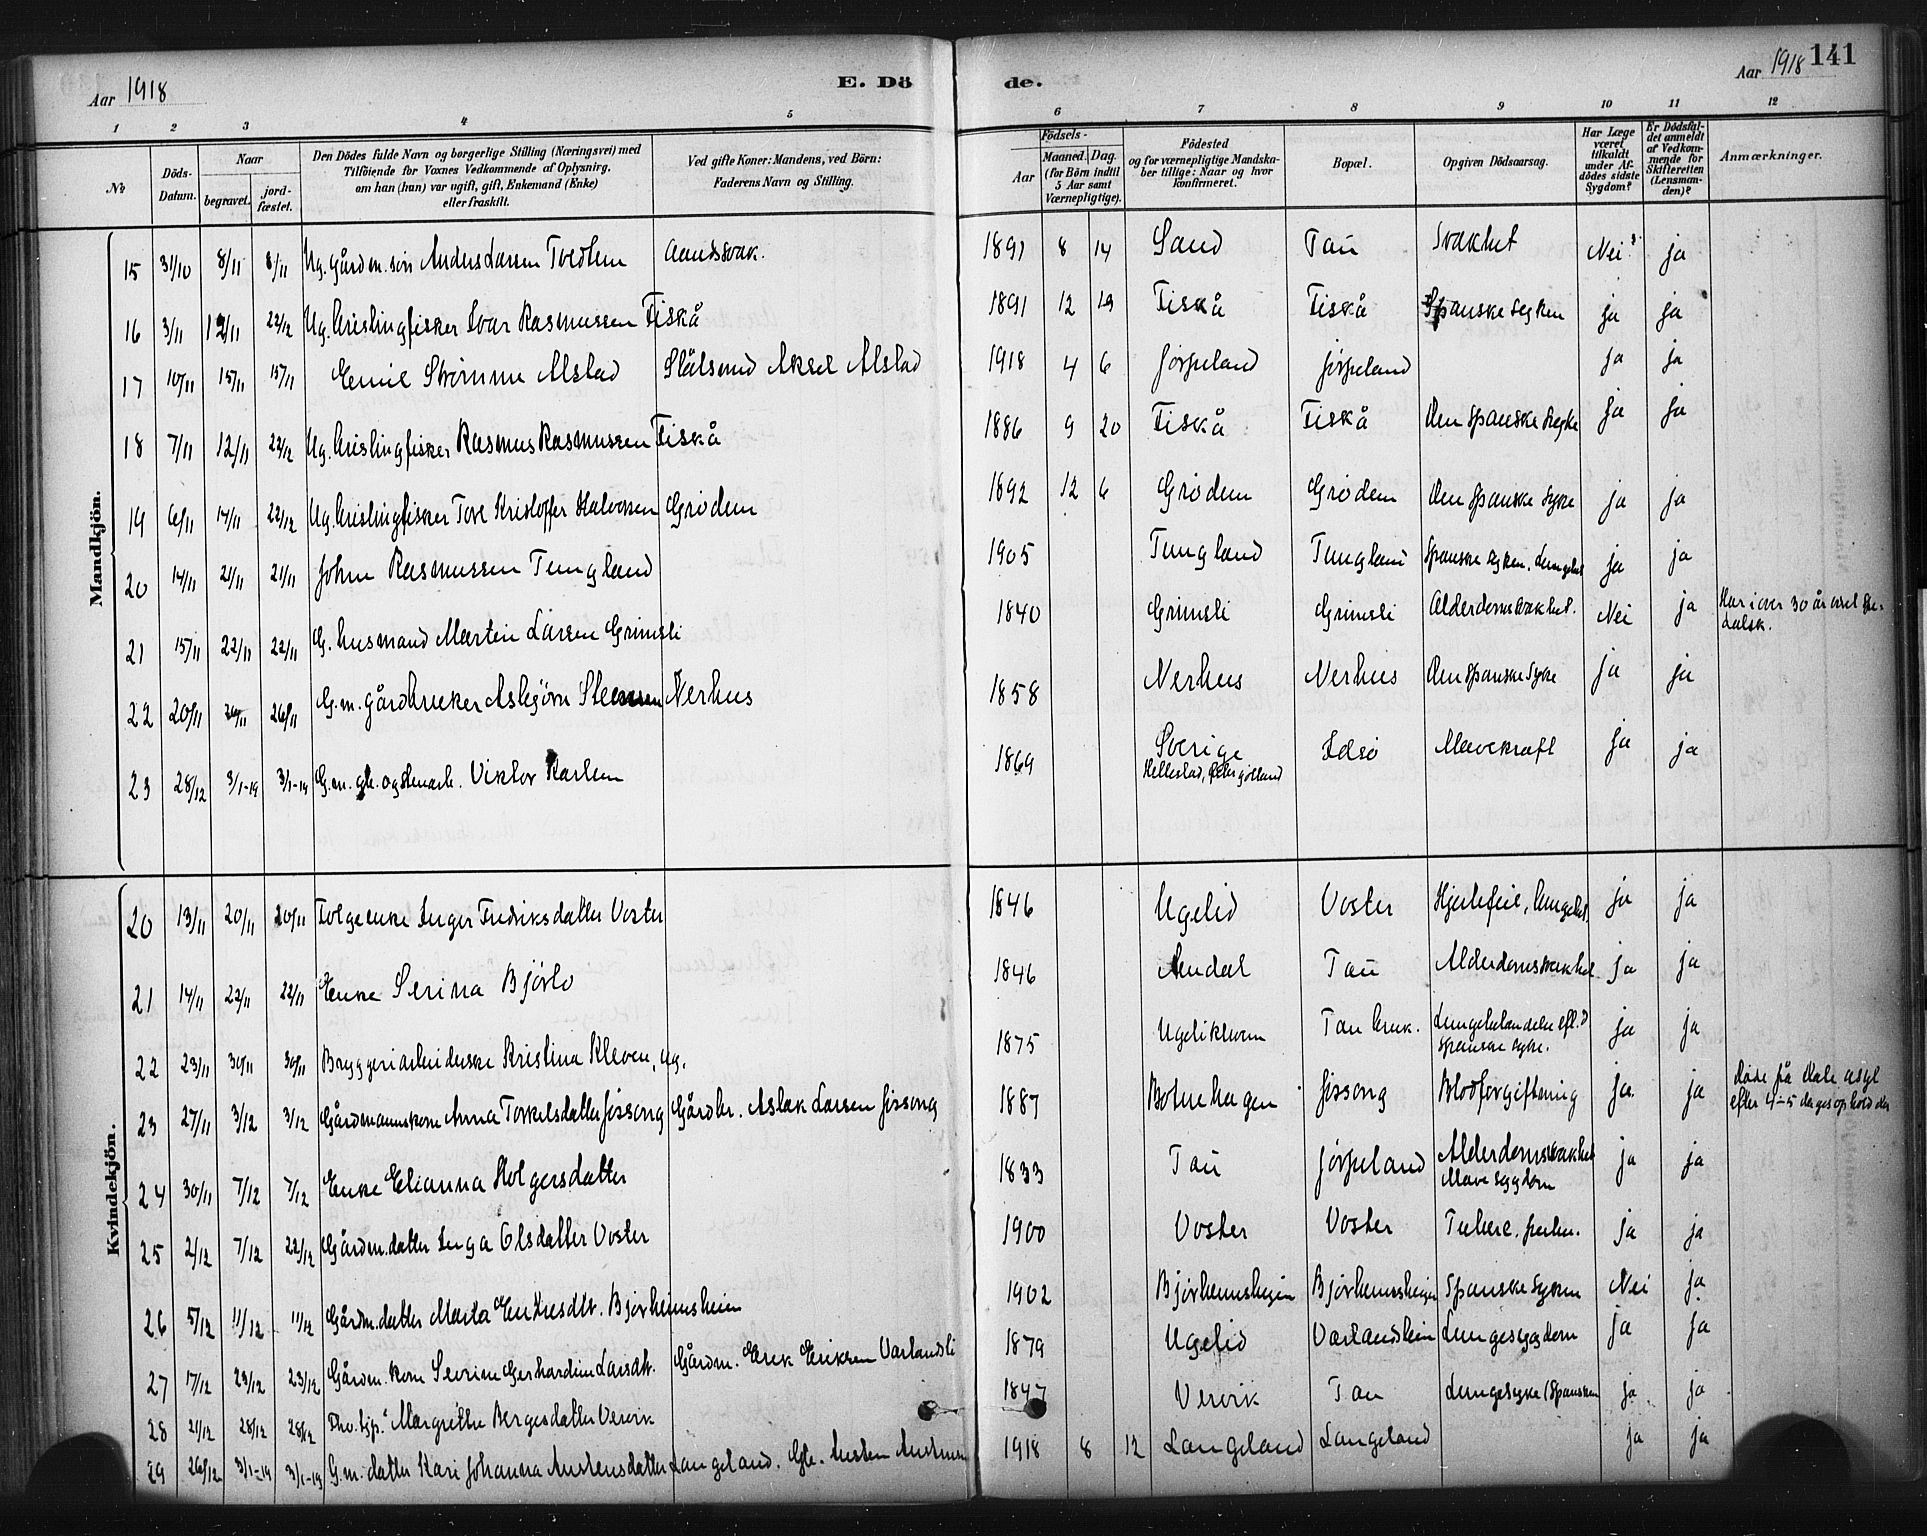 Aar 1918
E. Dö
de.
Aar 1918
141
1 2 3 4 5 6 7 8 9 10 11 12
No
Döds-Datum.
Naar
begravet.
jordfæstet.
Den Dödes fulde Navn og borgerlige Stilling (Næringsvei) med
Tilföiende for Voxnes Vedkommende af Oplysning,
om han (hun) var ugift, gift, Enkemand (Enke)
eller fraskilt.
Ved gifte Koner: Mandens, ved Börn:
Faderens Navn og Stilling.
Födsels-
Aar
Maaned. Dag.
(for Börn indtil
5 Aar samt
Værnepligtige).
Födested
og for værnepligtige Mandska-
ber tillige: Naar og hvor
konfirmeret.
Bopæl.
Opgiven Dödsaarsag.
Har Læge
været
tilkaldt
under Af-
dödes sidste
Sygdom?
Er Dödsfal-
det anmeldt
af Vedkom-
mende for
Skifteretten
(Lensman-
den)?
Anmærkninger.
Mandkjön.
15 31/10 8/11 8/11 Ug. gårdm. søn Anders Larsen Tvedten Aandssvak. 1891 8 14 Sand Tau Svakhet Nei ja
16 3/11 12/11 22/12 Ug. brislingfisker Ivar Rasmussen Fiskå 1891 12 19 Fiskå Fiskå Spanske syken ja ja
17 10/11 15/11 15/11 Emil Strømme Alstad Stålsmed Aksel Alstad 1918 4 6 Jørpeland Jørpeland ja ja
18 7/11 12/11 22/12 Ug. brislingfisker Rasmus Rasmussen Fiskå 1886 9 20 Fiskå Fiskå Den spanske syke ja ja
19 6/11 14/11 22/12 Ug. brislingfisker Tore Kristoffer Halvorsen Grødem 1892 12 6 Grødem Grødem Den spanske syke ja ja
20 14/11 21/11 21/11 John Rasmussen Tungland 1905 Tungland Tungland Spanske syken. ja ja
21 15/11 22/11 22/11 G. husmand Martin Larsen Grimsli 1840 Grimsli Grimsli Alderdomssvakhet. Nei ja Har i over 30 år vært spe-
dalsk.
22 20/11 26/11 26/11 G.m. gårdbruker Asbjørn Nerhus 1858 Nerhus Nerhus Den spanske syke ja ja
23 28/12 3/1-19 3/1-19 G.m. Viktor Karlsen 1869 Sverige
Idsø Mavekræft ja ja
Kvindekjön.
20 13/11 20/11 20/11 Inger Fredriksdatter Voster 1846 Ugelid Voster Hjertefeil, ja ja
21 14/11 22/11 22/11 Enke Serina Bjørlo 1846 Tau Alderdomssvakhet ja ja
22 23/11 30/11 30/11 Bryggeriarbeiderske Kristina Kleven, ug. 1875 Tau bruk. Lungebetændelse eft.
spanske syke. ja ja
23 27/11 3/12 3/12 Gårdmannskone Anna Torkelsdatter Jøssang Gårdbr. Aslak Larsen Jøssang 1887 Botnehagen Jøssang Blodforgiftning ja ja Døde på Dale asyl
efter 4-5 dages ophold der
24 30/11 7/12 7/12 Enke Elianna Holgersdatter 1833 Tau Jørpeland Alderdomssvakhet
Mavesygdom ja ja
25 2/12 7/12 22/12 Gårdm. datter Inga Olsdatter Voster 1900 Voster Voster ja ja
26 5/12 11/12 11/12 Gårdm. datter Marta Bjørheimsheien 1902 Bjørheimsheien Bjørheimsheien Spanske syken Nei ja
27 17/12 23/12 23/12 Gårdm. kone Serine Gerhardine Larsdtr. Gårdm. Erik Eriksen Varlandsli 1879 Ugelid Lungesygdom ja ja
28 21/12 28/12 28/12 Margrethe Bergesdatter Vervik 1847 Vervik Tau Lungesyke (Spansken ja ja
29 26/12 3/1-19 3/1-19 G.m. datter Kari Johanna Austensdatter Langeland. Gbr. Austen Austensen 1918 8 12 Langeland Langeland ja ja